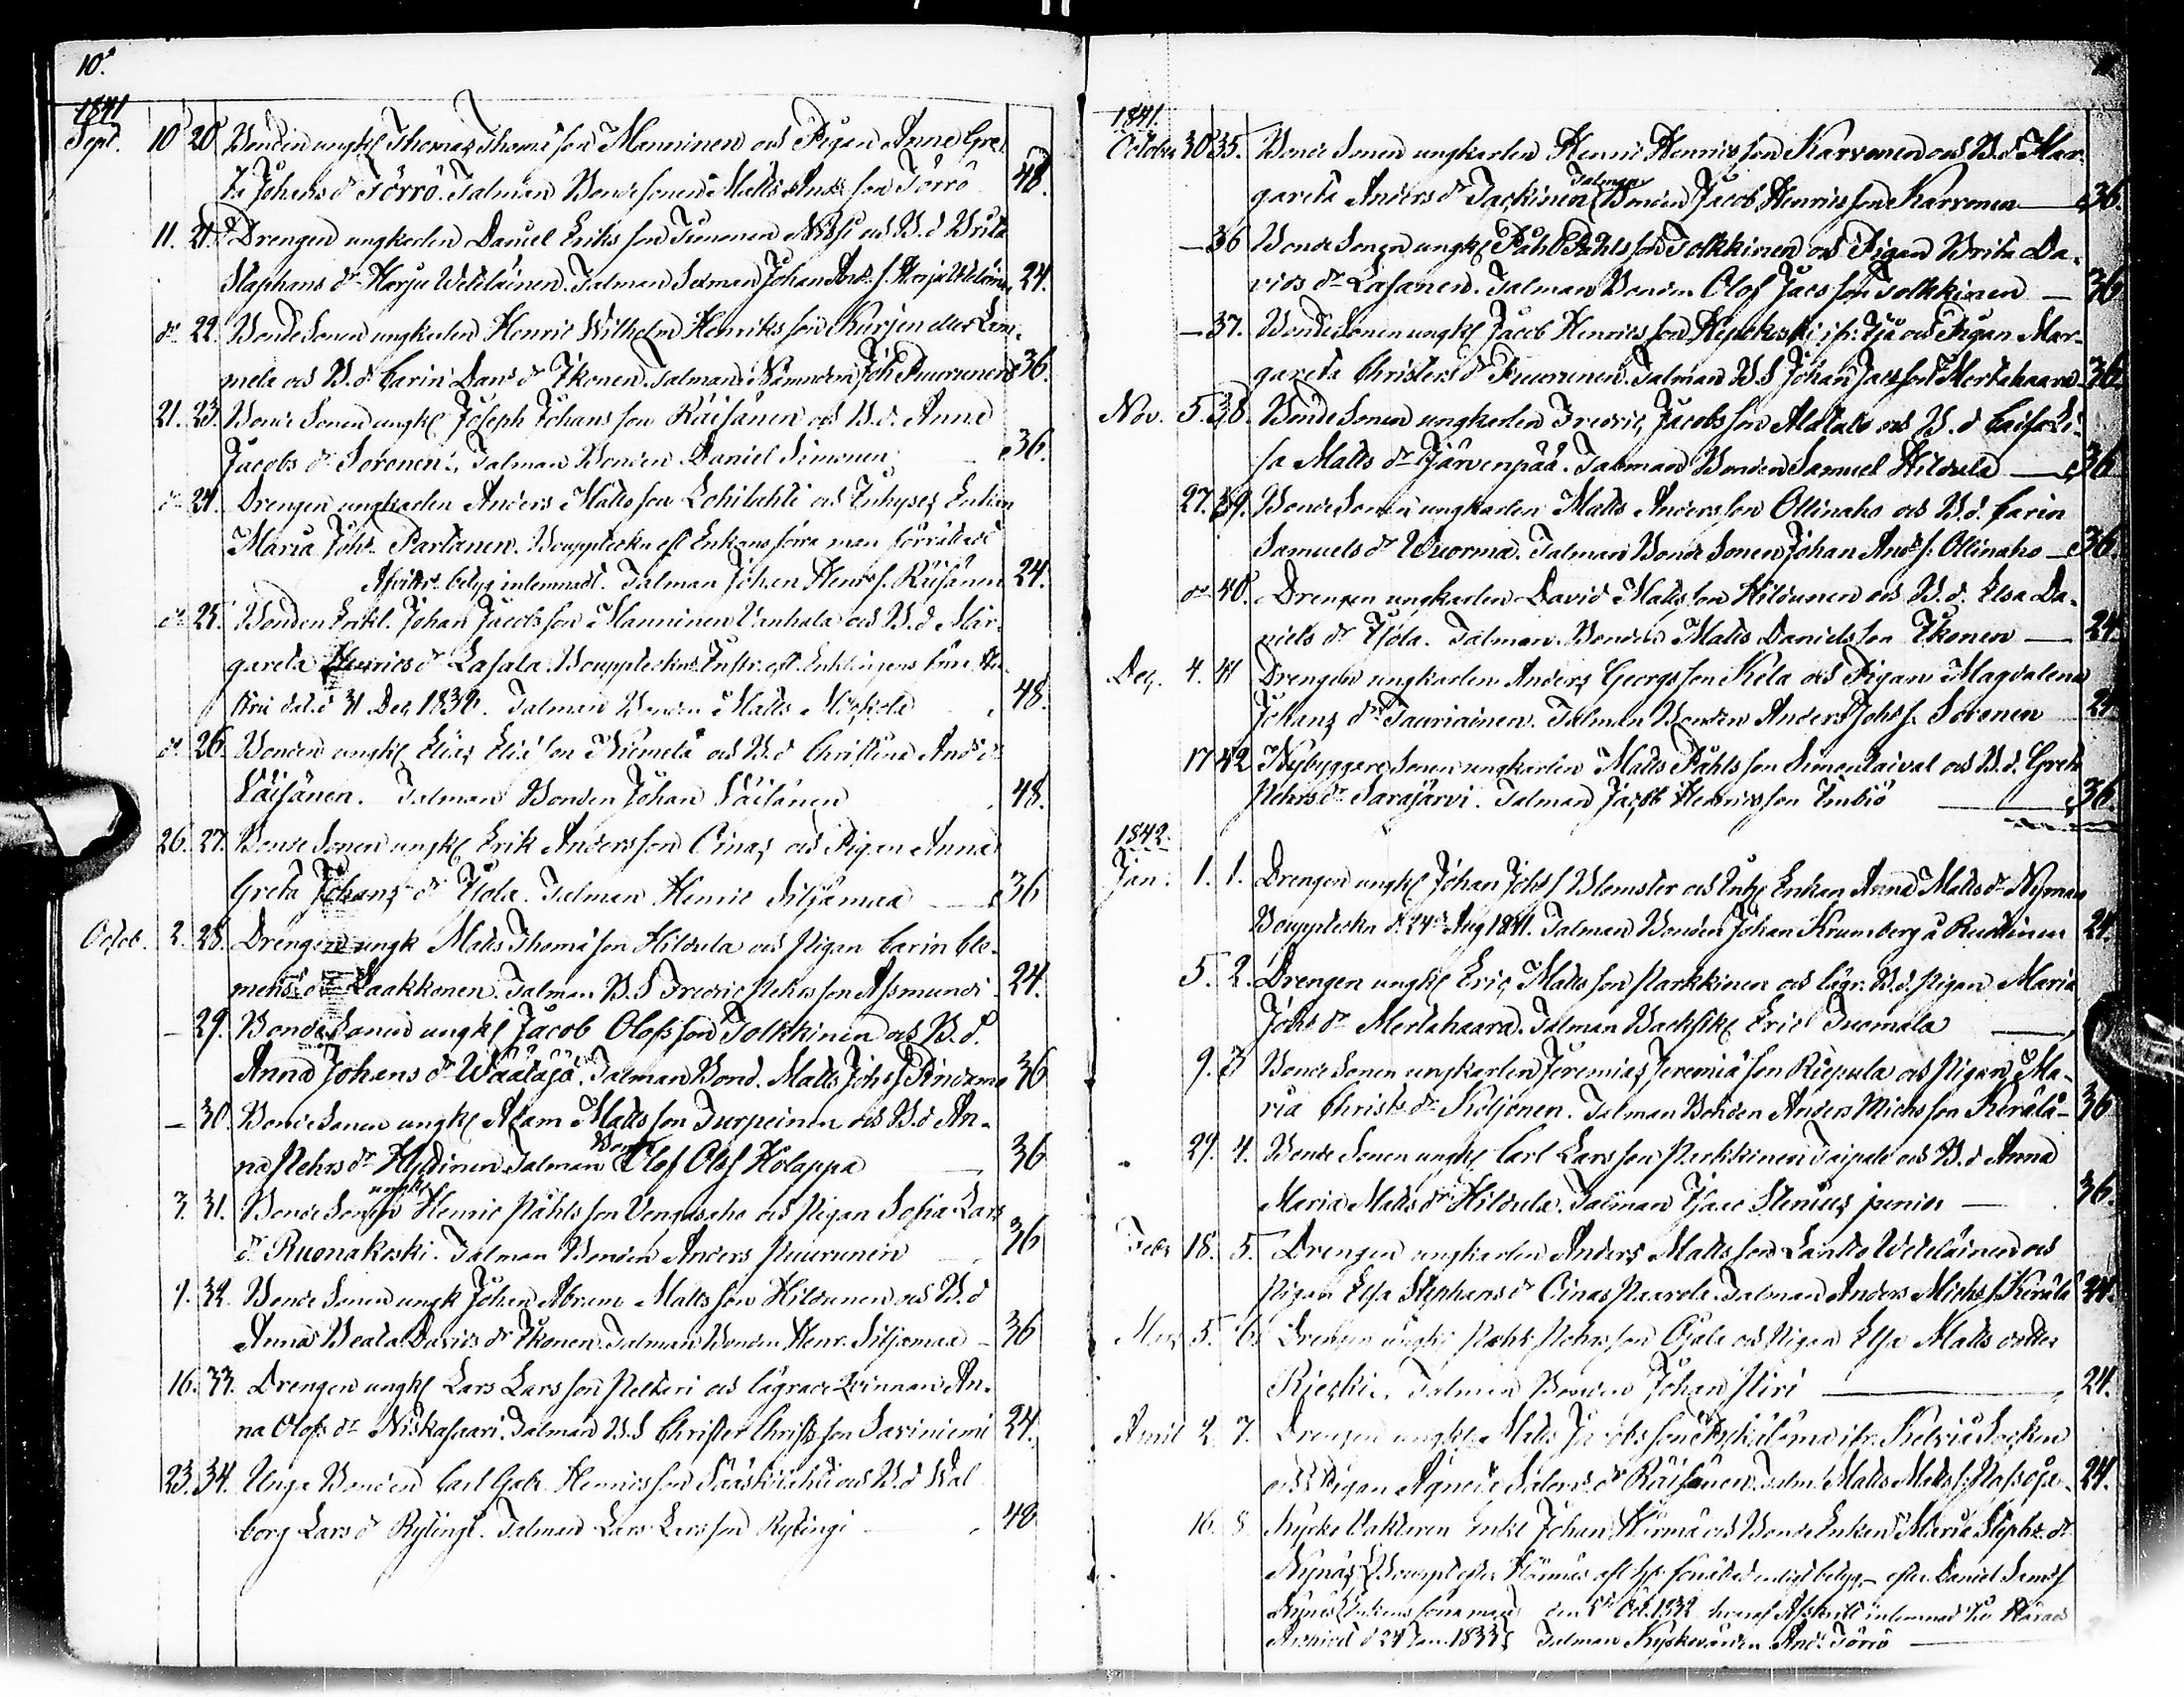 10.
1841
Sept. 10 20. Bonden ungk Thomas Thomæson Manninen och Pigan Anna Gre-
ta Johans dr Törrö. Talman Bondesonen Matts And:son Törrö 48.
11. 21. Drengen ungkarlen Daniel Eriksson Timonen och B.d Brita
Staphans dr Harju Weteläinen. Talman Johan And: s. 24.
dr 22. BondeSonen ungkarlen Henric Wilhelm Henriksson Kurjen eller Lam-
mela och B.d Carin Dans dr Ikonen. Talman Nämndem Joh Puurunen 36.
21. 23. Bonde Sonen ungk Joseph Johansson Räisänen och B.d. Anna
Jacobs dr Soronen. Talman Bonden Daniel Simonen 36.
dr 24. Drengen ungkarlen Anders Mattsson Lohilahti och Inhyses Enkan
Maria Johs. Partanen. Bouppteckn eft Enkans förra man förrättad
betyg inlemnadt. Talman Johan Henr: s. Räisänen 24.
dr 25. Bonden Enkl. Johan Jacobsson Manninen Vanhala och B.d Mar-
gareta Henrics dr Lasala. Bouppteckn Instr. eft. Enklingens förra
dat. d 31 Dec 1839. Talman Bonden Matts 48.
dr 26. Bonden ungk Elias Eliæson Niemelä och B.d Christina And: dr
Väisänen. Talman Bonden Johan Väisänen 48.
26. 27. Bonde Sonen ungk Erik Andersson Cinas och Pigan Anna
Greta Johans dr Ojola. Talman Henric Siljamaa 36
Octob. 2. 28. Drengen ungk Matts Thomæson Hildula och Pigan Carin Cle-
mens dr Laakkonen. Talman B.S Fredric Pehrsson Assmundi 24.
— 29. BondeSonen ungk Jacob Olofsson Tolkkinen och B.d.
Anna Johans dr Wäätäjä. Talman Bond. Matts Johs Pindama 36
— 30. BondeSonen ungk Adam Mattsson Turpeinen och B.d An-
na Pehrs dr Hyttinen Talman Bond Olof Olofs Holappa 36
3. 31. BondeSonen ungk Henric Påhlsson Vengasaho och Pigan Sofia Lars
dr Ruonakoski. Talman Bonden Anders Puurunen 36
9. 32. Bonde Sonen ungk Johan Abram Mattsson Hildunen och B.d
Anna Beata Davids dr Ikonen. Talman Bonden Henr. Siljamaa 36
16. 33. Drengen ungk Lars Larsson Peltari och lägrade Qvinnan An-
na Olofs dr Niskasaari. Talman B.S Christer Christsson Saviniemi 24.
23. 34. Unga Bonden Carl Gabr. Henricsson Sääskilahti och B.d Wal-
borg Lars dr Rytingi. Talman Lars Larsson Rytingi 48
1841.
October 30 35. Bonde Sonen ungkarlen Henric Henricsson Karvonen och B.d Mar-
gareta Anders dr Tackinen Talman Bonden Jacob Henricsson Karvonen 36.
— 36 Bonde Sonen ungk Påhl Påhlsson Tolkkinen och Pigan Brita Da-
vids dr Lasanen. Talman Bonden Olof Jacsson Tolkkinen — 36
— 37. BondeSonen ungk Jacob Henricsson Hepokoski och Pigan Mar-
gareta Christers dr Puurunen. Talman B S Johan Jacsson Mertahaara 36.
Nov. 5. 38. BondeSonen ungkarlen Fredric Jacobsson Alatalo och B.d Caisa Li-
sa Matts dr Järvenpää. Talman Bonden Samuel Hildula — 36
27. 39. BondeSonen ungkarlen Matts Andersson Ollinaho och B.d. Carin
Samuels dr Wuorma. Talman Bonde Sonen Johan And: s. Ollinaho — 36.
dr 40. Drengen ungkarlen David Mattsson Hildunen och B.d. Elsa Da-
niels dr Ojola. Talman Bonden Matts Danielsson Ikonen — 24.
Dec. 4. 41 Drengen ungkarlen Anders Georgsson Kela och Pigan Magdalena
Johans dr Tauriainen. Talman Bonden Anders Johs s. Soronen 24.
17 42 Nybyggare Sonen ungkarlen Matts Påhlsson Simontaival och B.d. Greta
Pehrs dr Sarajärvi. Talman Jacob Henricsson Timbiö 36
1842.
Jan. 1. 1. Drengen ungk Johan Johs s Blomster och Inh Enkan Anna Matts dr Nyman
Bouppteckn d. 24 Aug 1841. Talman Bonden Johan Krumberg å Ruottinen 24.
5. 2. Drengen ungk Eric Mattsson Parkkinen och lägr. B.d. Pigan Maria
Johs dr Mertahaara. Talman Eric Tuomala
9. 3 Bonde Sonen ungkarlen Jeremias Jeremiæson Riepula och Pigan Ma-
ria Christs dr Koljonen. Talman Bonden Anders Michsson Kerälä 36
29. 4. Bonde Sonen ungk Carl Larsson Parkkinen Taipale och B.d Anna
Maria Matts dr Hildula. Talman Isaac Stenius junior — 36.
Febr 18. 5. Drengen ungkarlen Anders Mattsson Lantto Weteläinen och
Pigan Elsa Stephans dr Cinas Paavola. Talman Anders Michs s Kerälä 24.
Mars 5. 6. Drengen ungk Påhl Pehrsson Ojala och Pigan Elsa Matts dotter
Rieski. Talman Bonden Johan Piri 24.
April 2 7. Drengen ungk Matts Jacobsson ifr. Kelviå Socken
och Pigan Agneta Salom: dr Räisänen. Talm. Matts Matts s. 24.
16. 8 Kyrko Vaktaren Enkl Johan Hurma och Bonde Enkan Maria Steph: dr
Nynäs eft efter Daniel Sams s
Nynäs (Enkans förra man) den 5 Oct. 1832 inlemnad til Härads
Archivet d 24 Jan. 1833 Talman And: Törrö